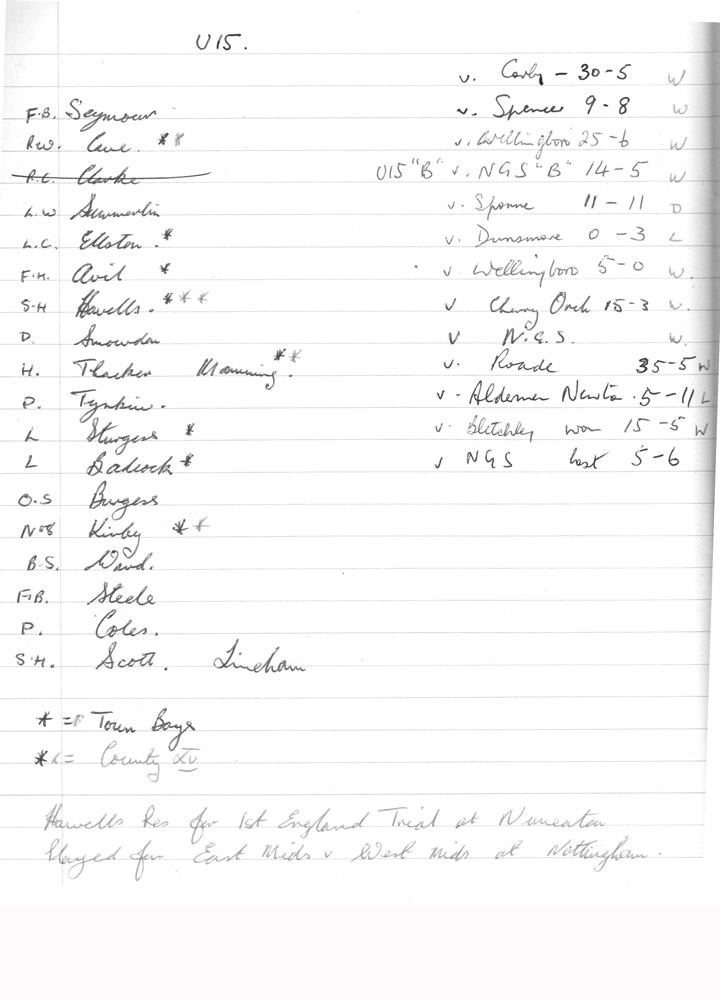 U15.
v. Corby - 30-5 W
F.B. Seymour v. Spencer 9-8 W
R.W. Cave. ** v. Wellingboro 25-6 W
R.C. Clarke U15 "B" v. NGS "B" 14-5 W
L.W Summerlin v. Sponne 11-11 D
L.C. Ellston.* v. Dunsmore 0-3 L
F.H. Avil * v Wellingboro 5-0 W.
S.H Howells.*** v Cherry Orch 15-3 W.
D. Snowden v N.G.S. W.
H. Thacker Manning.** v. Roade 35-5 W
P. Tynkin. v. Alderman Newton.5-11 L
L Sturgess * v. Bletchley won 15-5 W
L Badcock * v NGS lost 5-6
O.S Burgess
No8 Kirby **
B.S. Ward.
F.B. Steele
P. Coles.
S.H. Scott. Lineham
* = Town Boys
** = County XV
Howells Res for 1st England Trial at Nuneaton
Played for East Mids v West Mids at Nottingham.